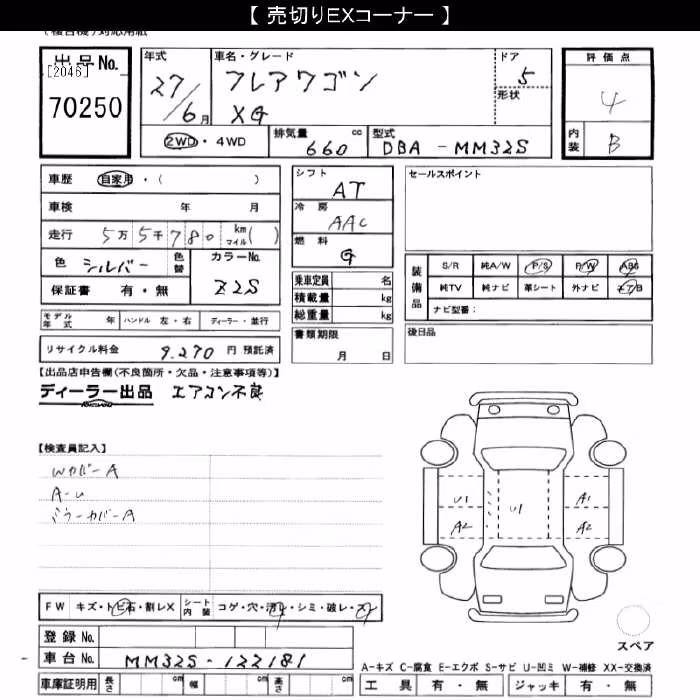 【 売切りEXコーナー 】
出品No.
[2046]
70250
年式
27/6月
車名・グレード
フレアワゴン
XG
ドア
5
形状
評価点
4
内装
B
2WD・4WD
排気量
660 cc
型式
DBA - MM32S
車歴 自家用・( )
車検 年 月
走行 5万5千780 km マイル( )
色 シルバー
色替
カラーNo.
Z2S
保証書 有・無
シフト
AT
冷房
AAC
燃料
G
乗車定員 名
積載量 kg
総重量 kg
書類期限
月 日
セールスポイント
装備品
S/R 純A/W P/S P/W ABS
純TV 純ナビ 革シート 外ナビ エアB
ナビ型番:
後日品
モデル年式 年 ハンドル 左・右 ディーラー・並行
リサイクル料金 9,270 円 預託済
【出品店申告欄(不良箇所・欠品・注意事項等)】
ディーラー出品 エアコン不良
【検査員記入】
Wカバー A
A-U
ミラーカバー A
U1 U1 A1
A2 A2
FW キズ・トビ石・割レX シート内装 コゲ・穴・汚レ・シミ・破レ・スレ
登録No.
車台No. MM32S-122181
車庫証明用 長さ cm 幅 cm 高さ cm
スペア
A-キズ C-腐食 E-エクボ S-サビ U-凹ミ W-補修 XX-交換済
工具 有・無 ジャッキ 有・無